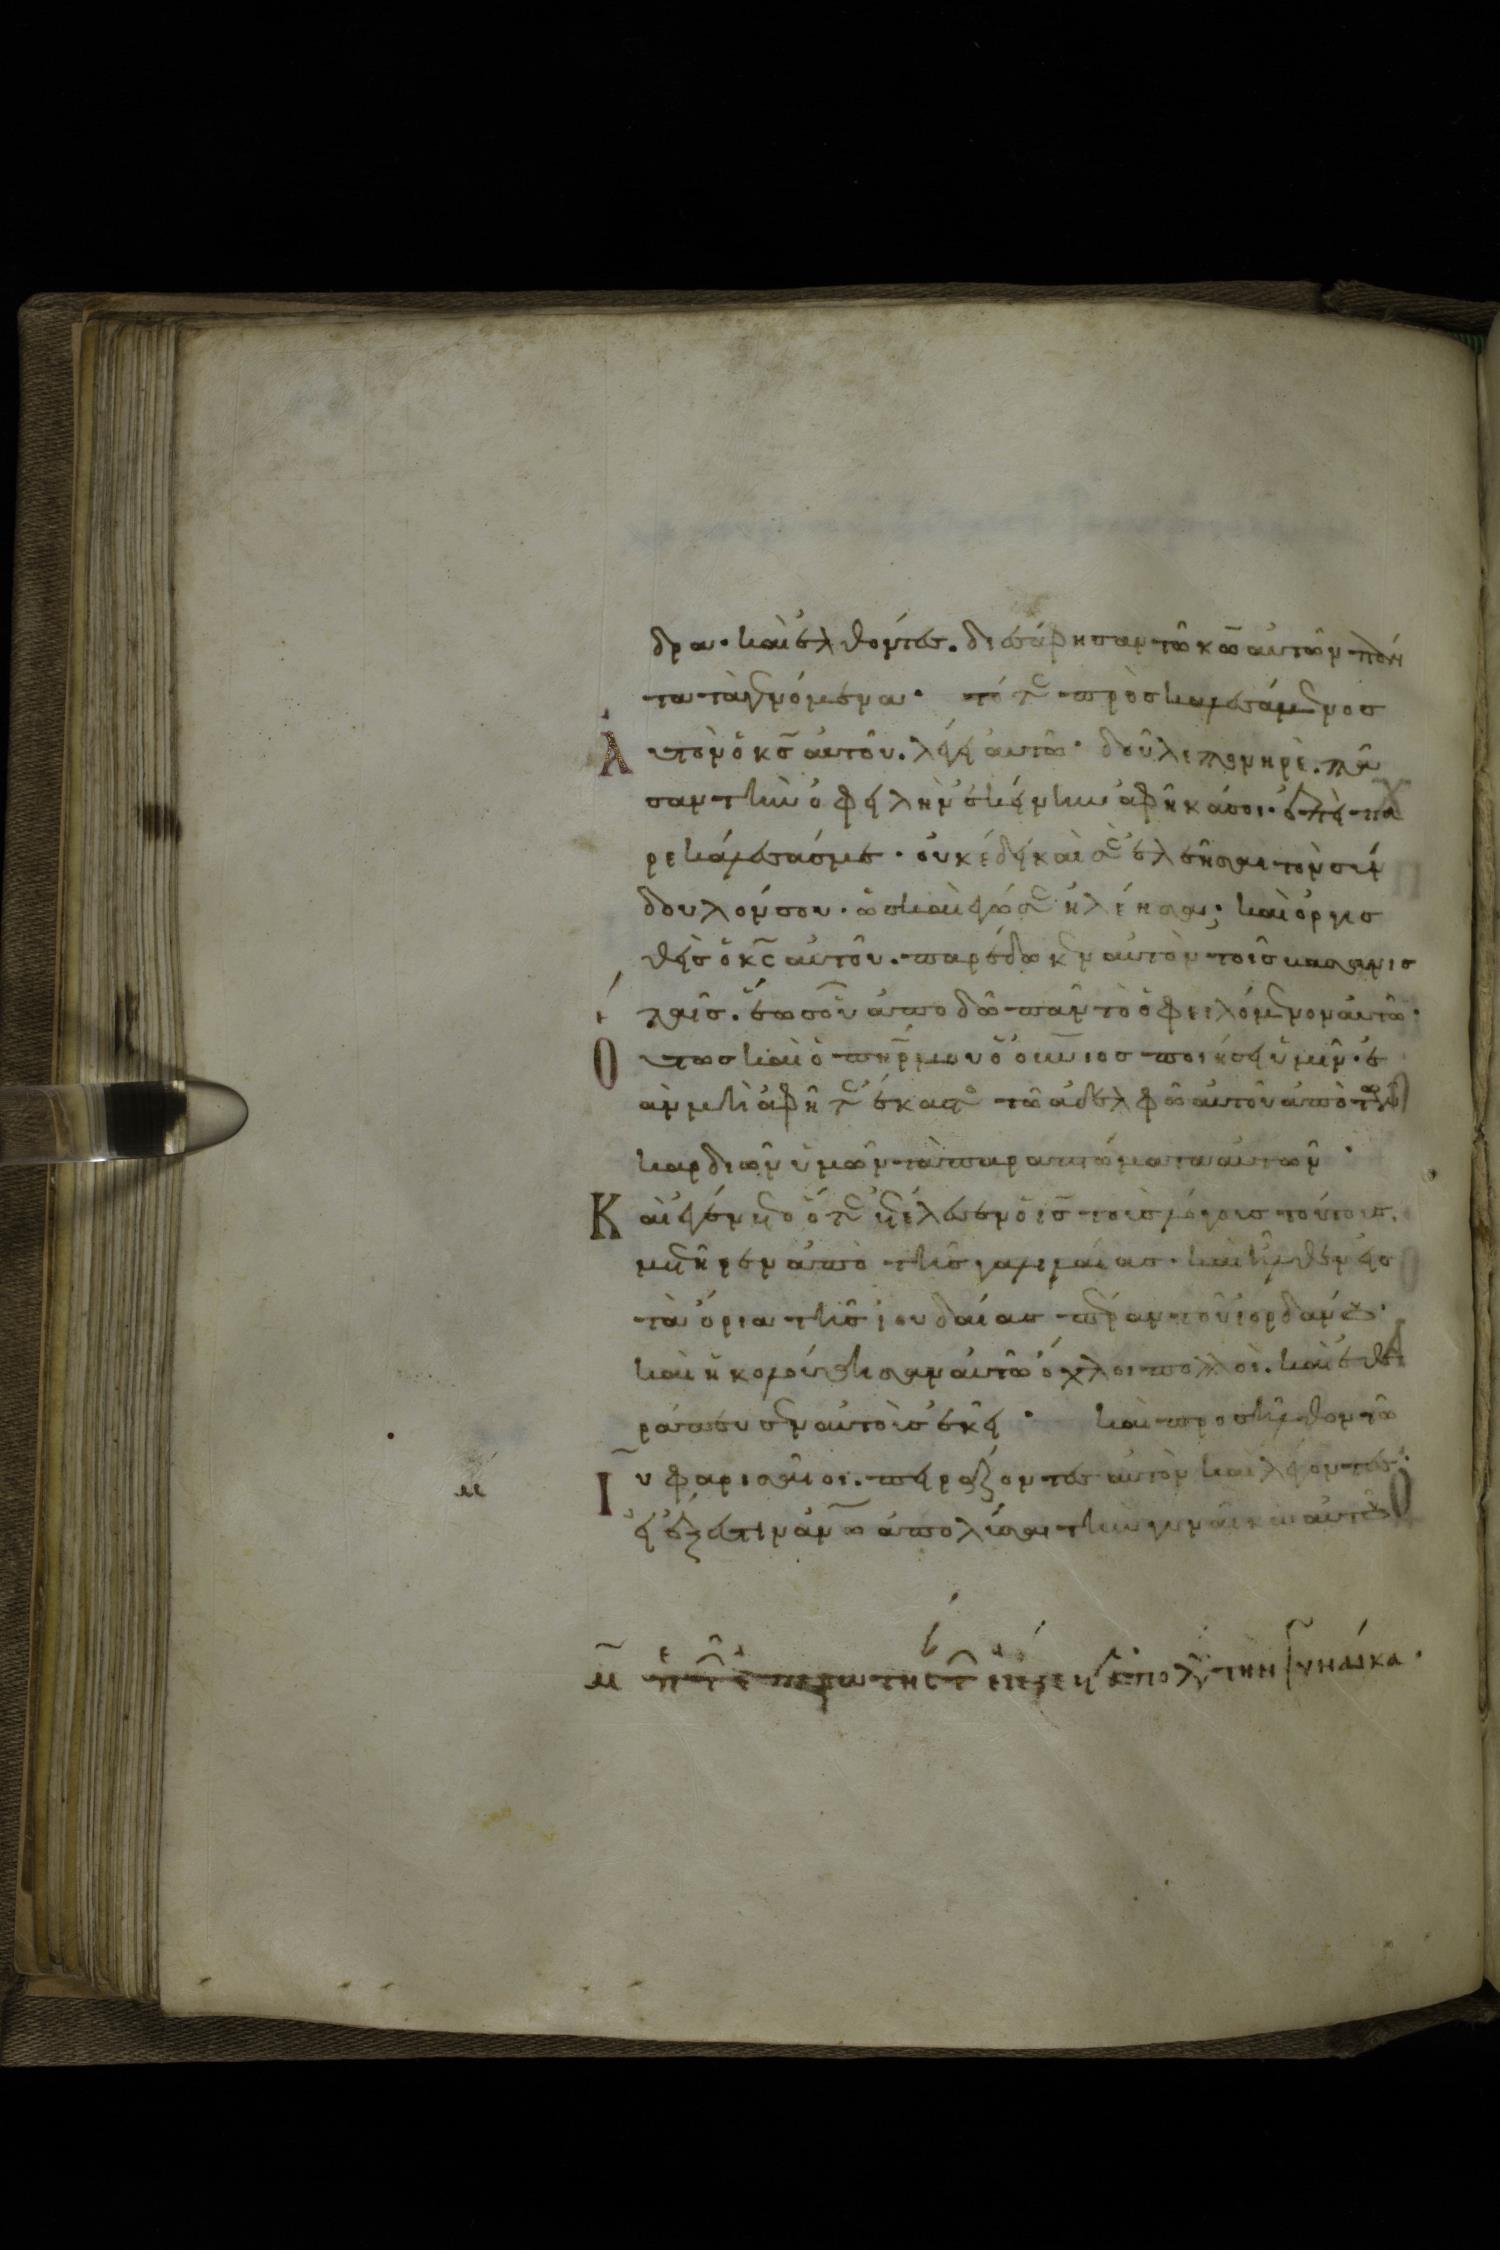 δρα· καὶ ἐλθόντες. διεσάφησαν τῶ κω̅ αὐτῶν πάν
τα τὰ γενόμενα· τότε προσκαλεσάμενος
Αὐτὸν ὁ κσ̅ αὐτοῦ. λέγει αὐτῶ· δοῦλε πονηρὲ. πᾶ
σαν τὴν ὀφειλὴν ἐκείνην ἀφῆκά σοι· ἐπεὶ πα
ρεκάλεσάς με· οὐκ ἔδει καὶ σὲ ἐλεῆσαι τὸν σύν
δουλόν σου· ὡς καὶ ἐγώ σε ἠλέησα· καὶ ὀργισ
θεὶς ὁ κς̅ αὐτοῦ. παρέδωκεν αὐτὸν τοῖς βασανισ
ταῖς. ἕως οὗ ἀποδῶ πᾶν τὸ ὀφειλόμενον αὐτῶ·
Οὕτως καὶ ὁ πη̅ρ μου ὁ οὐν̅ιος ποιήσει ὑμῖν· ἐ
ὰν μὴ ἀφῆτε ἕκαστος τῶ ἀδελφῶ αὐτοῦ ἀπὸ τῶν
καρδιῶν ὑμῶν τὰ παραπτώματα αὐτῶν·
Καὶ ἐγένετο ὅτε ἐτέλεσεν ὁ ισ̅ τοὺς λόγους τούτους.
μετῆρεν ἀπὸ τῆς γαλιλαίας· καὶ ἦλθεν εἰς
τὰ ὅρια τῆς ἰουδαίας πέραν τοῦ ἰορδάνου·
καὶ ἠκολούθησαν αὐτῶ ὄχλοι πολλοὶ. καὶ ἐθε
ράπευσεν αὐτοὺς ἐκεῖ· καὶ προσῆλθον τῶ
Ιυ̅ φαρισαῖοι. πειράζοντες αὐτὸν καὶ λέγοντες·
εἰ ἔξεστιν ἀνω̅ ἀπολῦσαι τὴν γυναῖκα αὐτοῦ
μ̅ ἐπερωτησ ἀπολῦ τὴν γυναίκα·